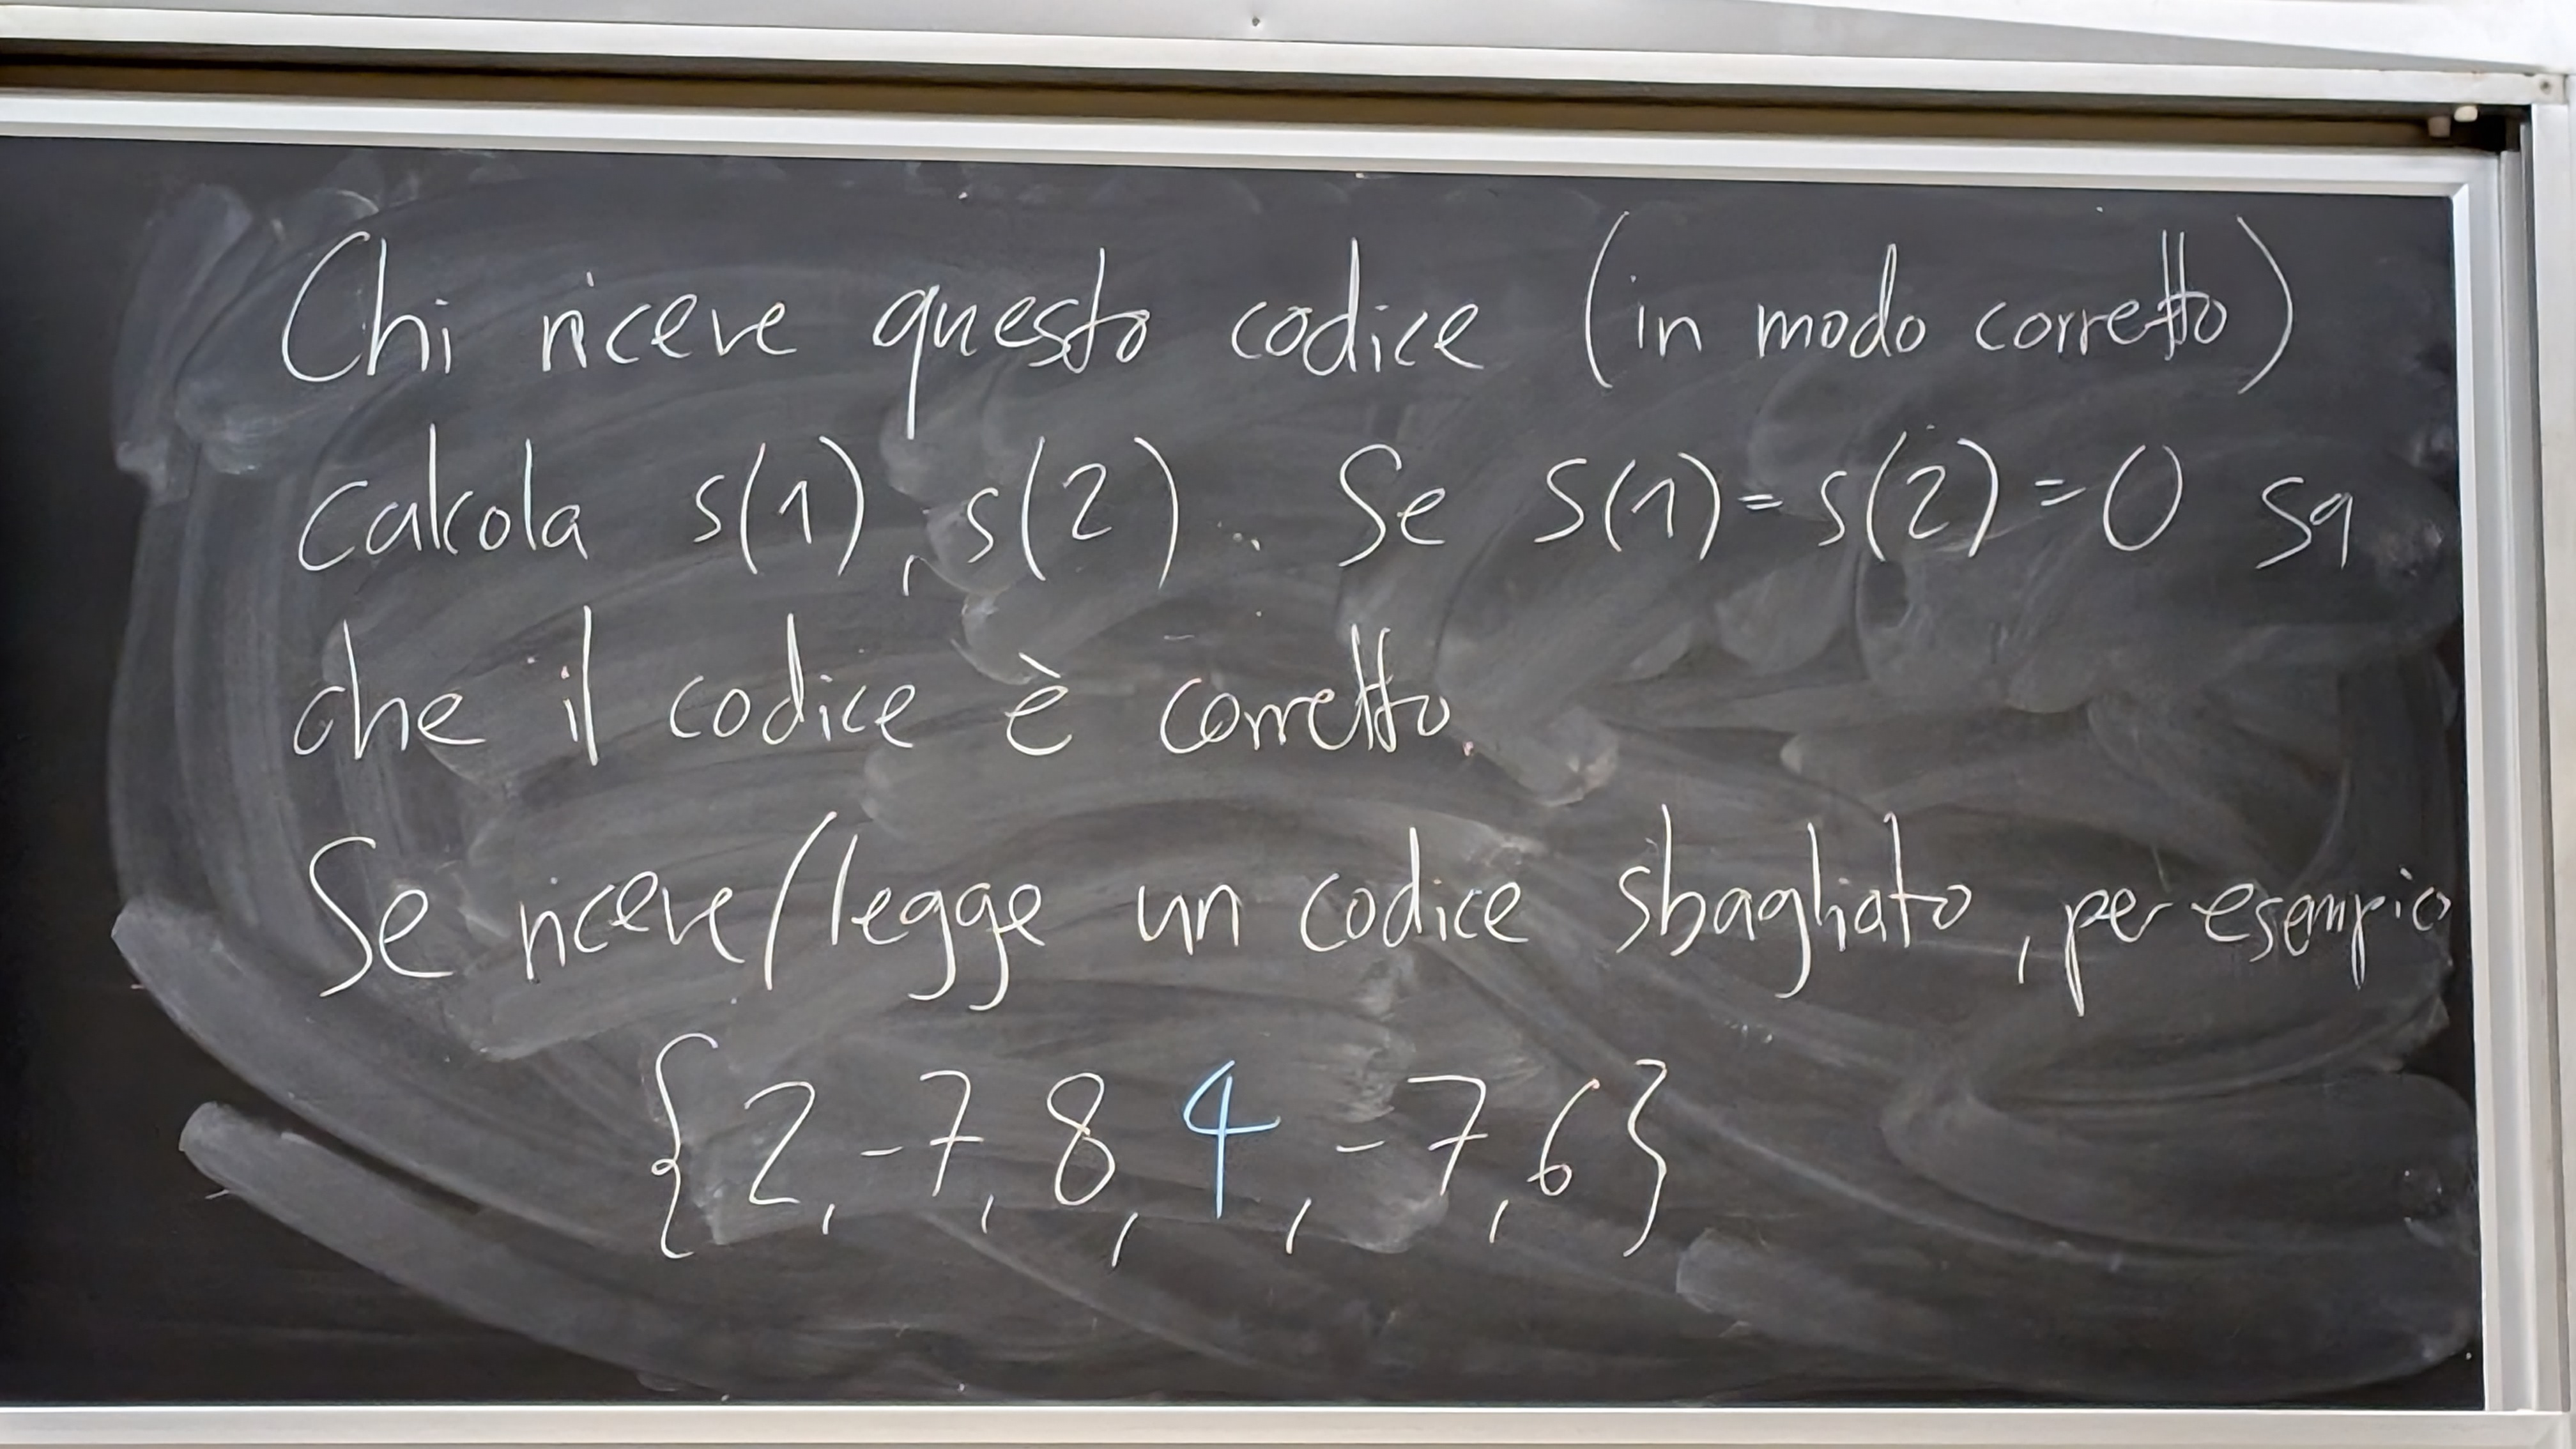 Chi riceve questo codice (in modo corretto)
calcola s(1), s(2). Se s(1)=s(2)=0 sa
che il codice è corretto.
Se riceve/legge un codice sbagliato, per esempio
{2, -7, 8, 4, -7, 6}